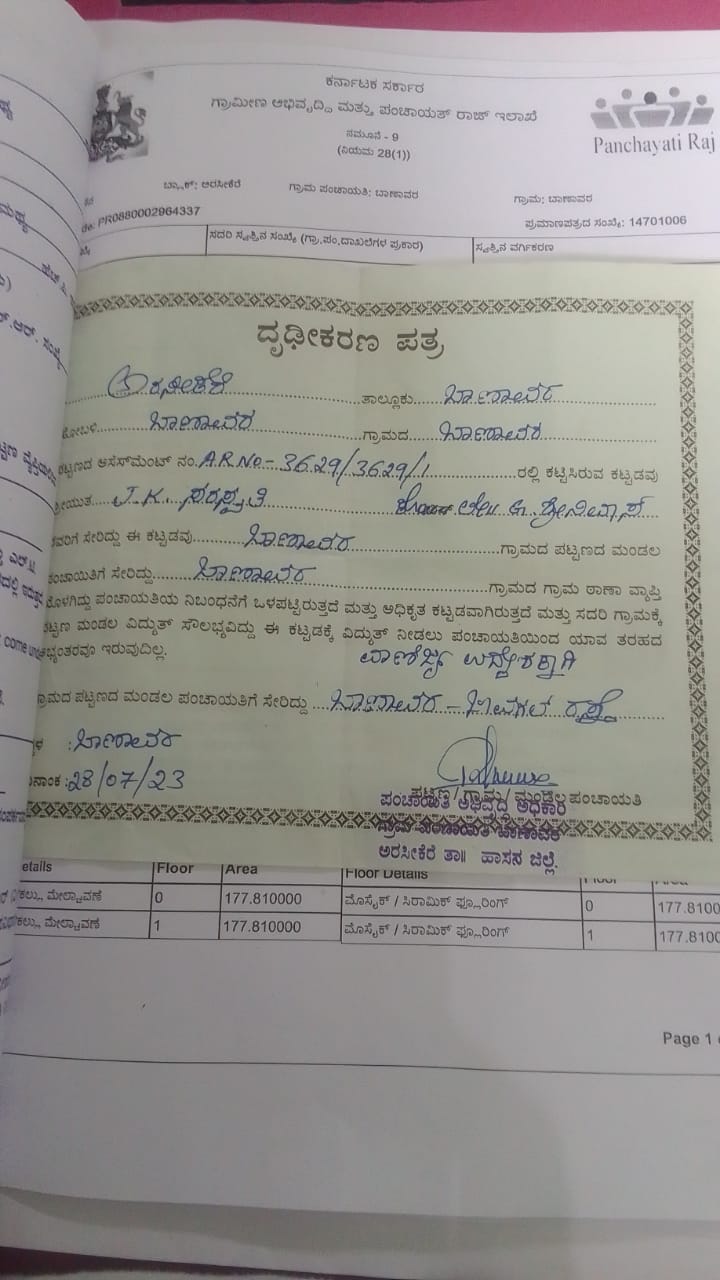 ಕರ್ನಾಟಕ ಸರ್ಕಾರ
ಗ್ರಾಮೀಣ ಅಭಿವೃದ್ಧಿ ಮತ್ತು ಪಂಚಾಯತ್ ರಾಜ್ ಇಲಾಖೆ
ನಮೂನೆ - 9
(ನಿಯಮ 28(1))
Panchayati Raj
ಬ್ಲಾಕ್: ಅರಸೀಕೆರೆ ಗ್ರಾಮ ಪಂಚಾಯತಿ: ಬಾಣಾವರ ಗ್ರಾಮ: ಬಾಣಾವರ
PR0880002964337 ಪ್ರಮಾಣಪತ್ರದ ಸಂಖ್ಯೆ: 14701006
ಸದರಿ ಸ್ವತ್ತಿನ ಸಂಖ್ಯೆ (ಗ್ರಾ.ಪಂ.ದಾಖಲೆಗಳ ಪ್ರಕಾರ) ಸ್ವತ್ತಿನ ವರ್ಗೀಕರಣ
ದೃಢೀಕರಣ ಪತ್ರ
ಅರಸೀಕೆರೆ ತಾಲ್ಲೂಕು ಬಾಣಾವರ
ಹೋಬಳಿ ಬಾಣಾವರ ಗ್ರಾಮದ ಬಾಣಾವರ
ಪಟ್ಟಣದ ಅಸೆಸ್‌ಮೆಂಟ್ ನಂ. A.R.No.- 3629/3629/1 ರಲ್ಲಿ ಕಟ್ಟಿಸಿರುವ ಕಟ್ಟಡವು
ಶ್ರೀಯುತ J.K. ಸರಸ್ವತಿ ಶ್ರೀನಿವಾಸ್
ರವರಿಗೆ ಸೇರಿದ್ದು ಈ ಕಟ್ಟಡವು ಬಾಣಾವರ ಗ್ರಾಮದ ಪಟ್ಟಣದ ಮಂಡಲ
ಪಂಚಾಯಿತಿಗೆ ಸೇರಿದ್ದು ಬಾಣಾವರ ಗ್ರಾಮದ ಗ್ರಾಮ ಠಾಣಾ ವ್ಯಾಪ್ತಿ
ಒಳಗಿದ್ದು ಪಂಚಾಯತಿಯ ನಿಬಂಧನೆಗೆ ಒಳಪಟ್ಟಿರುತ್ತದೆ ಮತ್ತು ಅಧಿಕೃತ ಕಟ್ಟಡವಾಗಿರುತ್ತದೆ ಮತ್ತು ಸದರಿ ಗ್ರಾಮಕ್ಕೆ
ಪಟ್ಟಣ ಮಂಡಲ ವಿದ್ಯುತ್ ಸೌಲಭ್ಯವಿದ್ದು ಈ ಕಟ್ಟಡಕ್ಕೆ ವಿದ್ಯುತ್ ನೀಡಲು ಪಂಚಾಯತಿಯಿಂದ ಯಾವ ತರಹದ
ಅಭ್ಯಂತರವೂ ಇರುವುದಿಲ್ಲ. ವಾಣಿಜ್ಯ ಉದ್ದೇಶಕ್ಕಾಗಿ
ಗ್ರಾಮದ ಪಟ್ಟಣದ ಮಂಡಲ ಪಂಚಾಯತಿಗೆ ಸೇರಿದ್ದು ಬಾಣಾವರ - ಜಾವಗಲ್ ರಸ್ತೆ
ಸ್ಥಳ : ಬಾಣಾವರ
ದಿನಾಂಕ : 28/07/23
ಪಟ್ಟಣ / ಗ್ರಾಮ / ಮಂಡಲ ಪಂಚಾಯತಿ
ಪಂಚಾಯತಿ ಅಭಿವೃದ್ಧಿ ಅಧಿಕಾರಿ
ಗ್ರಾಮ ಪಂಚಾಯತಿ ಬಾಣಾವರ
ಅರಸೀಕೆರೆ ತಾ|| ಹಾಸನ ಜಿಲ್ಲೆ.
etails Floor Area Floor Details Floor Area
ಕಲ್ಲು ಮೇಲ್ಚಾವಣಿ 0 177.810000 ಮೊಸೈಕ್ / ಸಿರಾಮಿಕ್ ಫ್ಲೂರಿಂಗ್ 0 177.8100
ಕಲ್ಲು ಮೇಲ್ಚಾವಣಿ 1 177.810000 ಮೊಸೈಕ್ / ಸಿರಾಮಿಕ್ ಫ್ಲೂರಿಂಗ್ 1 177.8100
Page 1